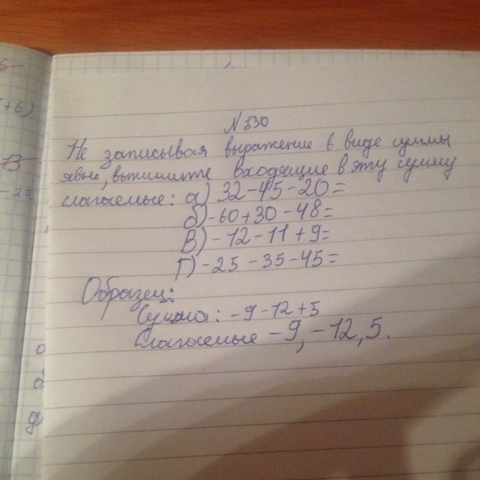 № 330
Не записывая выражение в виде суммы
явно, выпишите входящие в эту сумму
слагаемые: а) 32-45-20=
б)-60+30-48=
в)-12-11+9=
г)-25-35-45=
Образец:
Сумма: -9-12+5
Слагаемые -9, -12, 5.